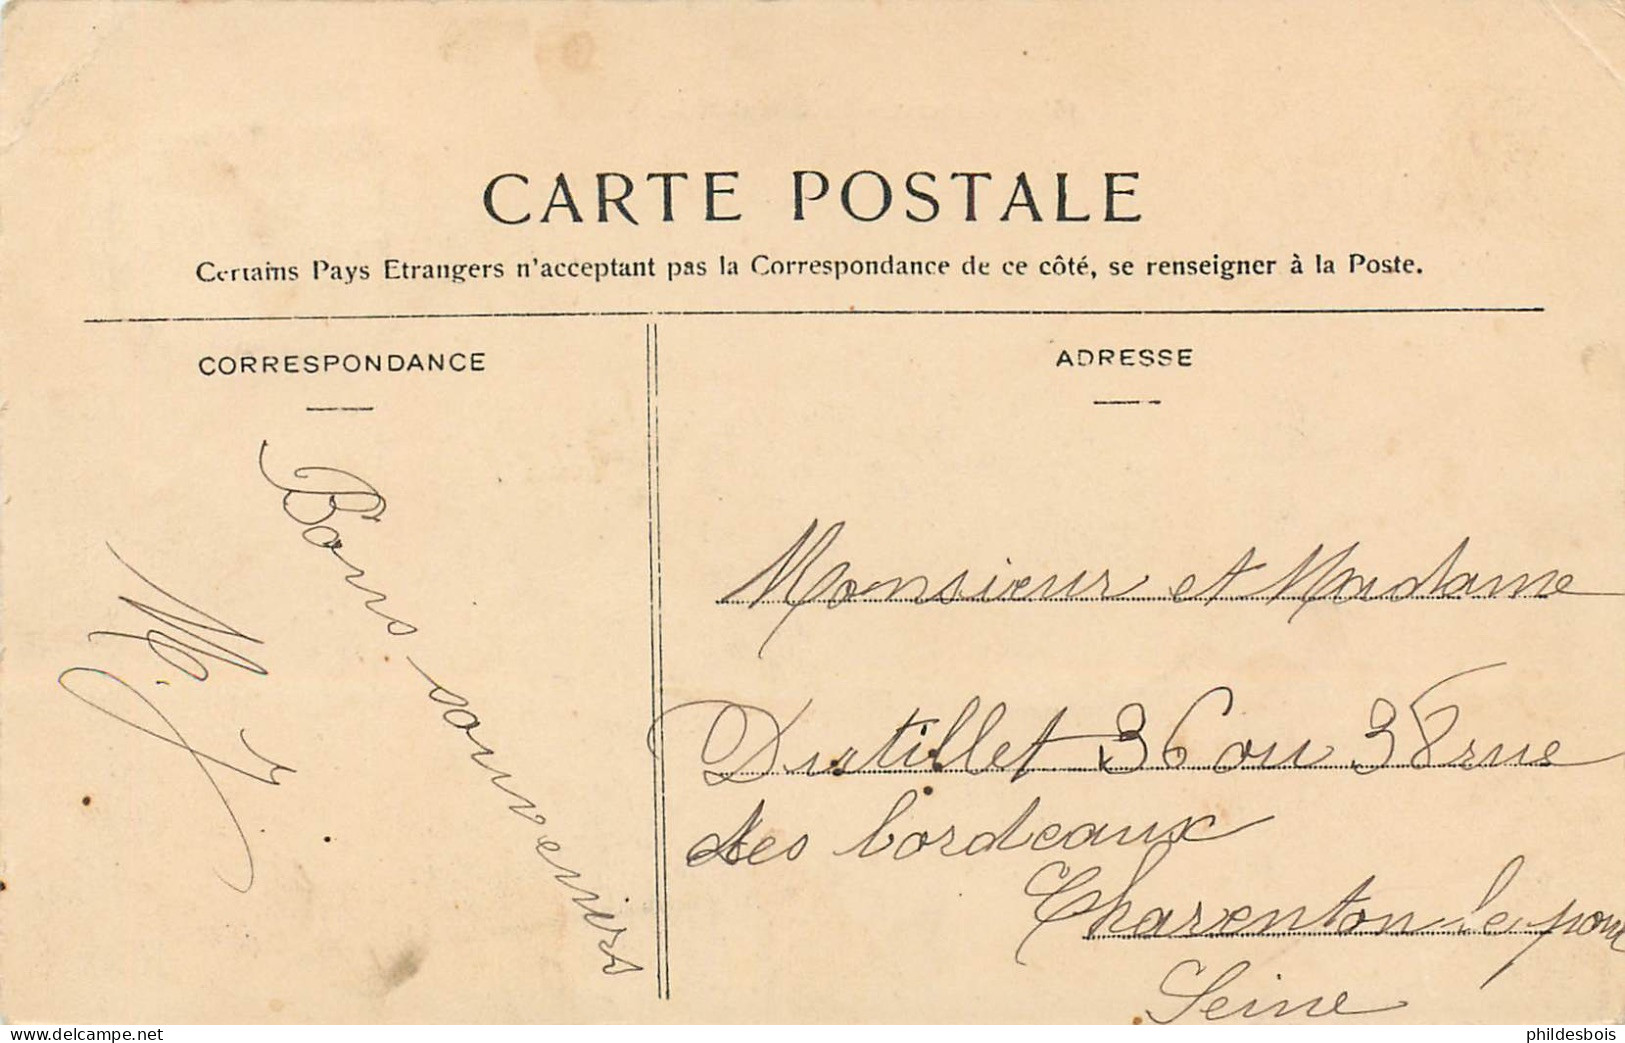 CARTE POSTALE
Certains Pays Etrangers n'acceptant pas la Correspondance de ce côté, se renseigner à la Poste.
CORRESPONDANCE
Bons souvenirs
ADRESSE
Monsieur et Madame
Distillet 36 ou 38 rue
des bordeaux
Charenton le pont
Seine
delcampe.net
phildesbois